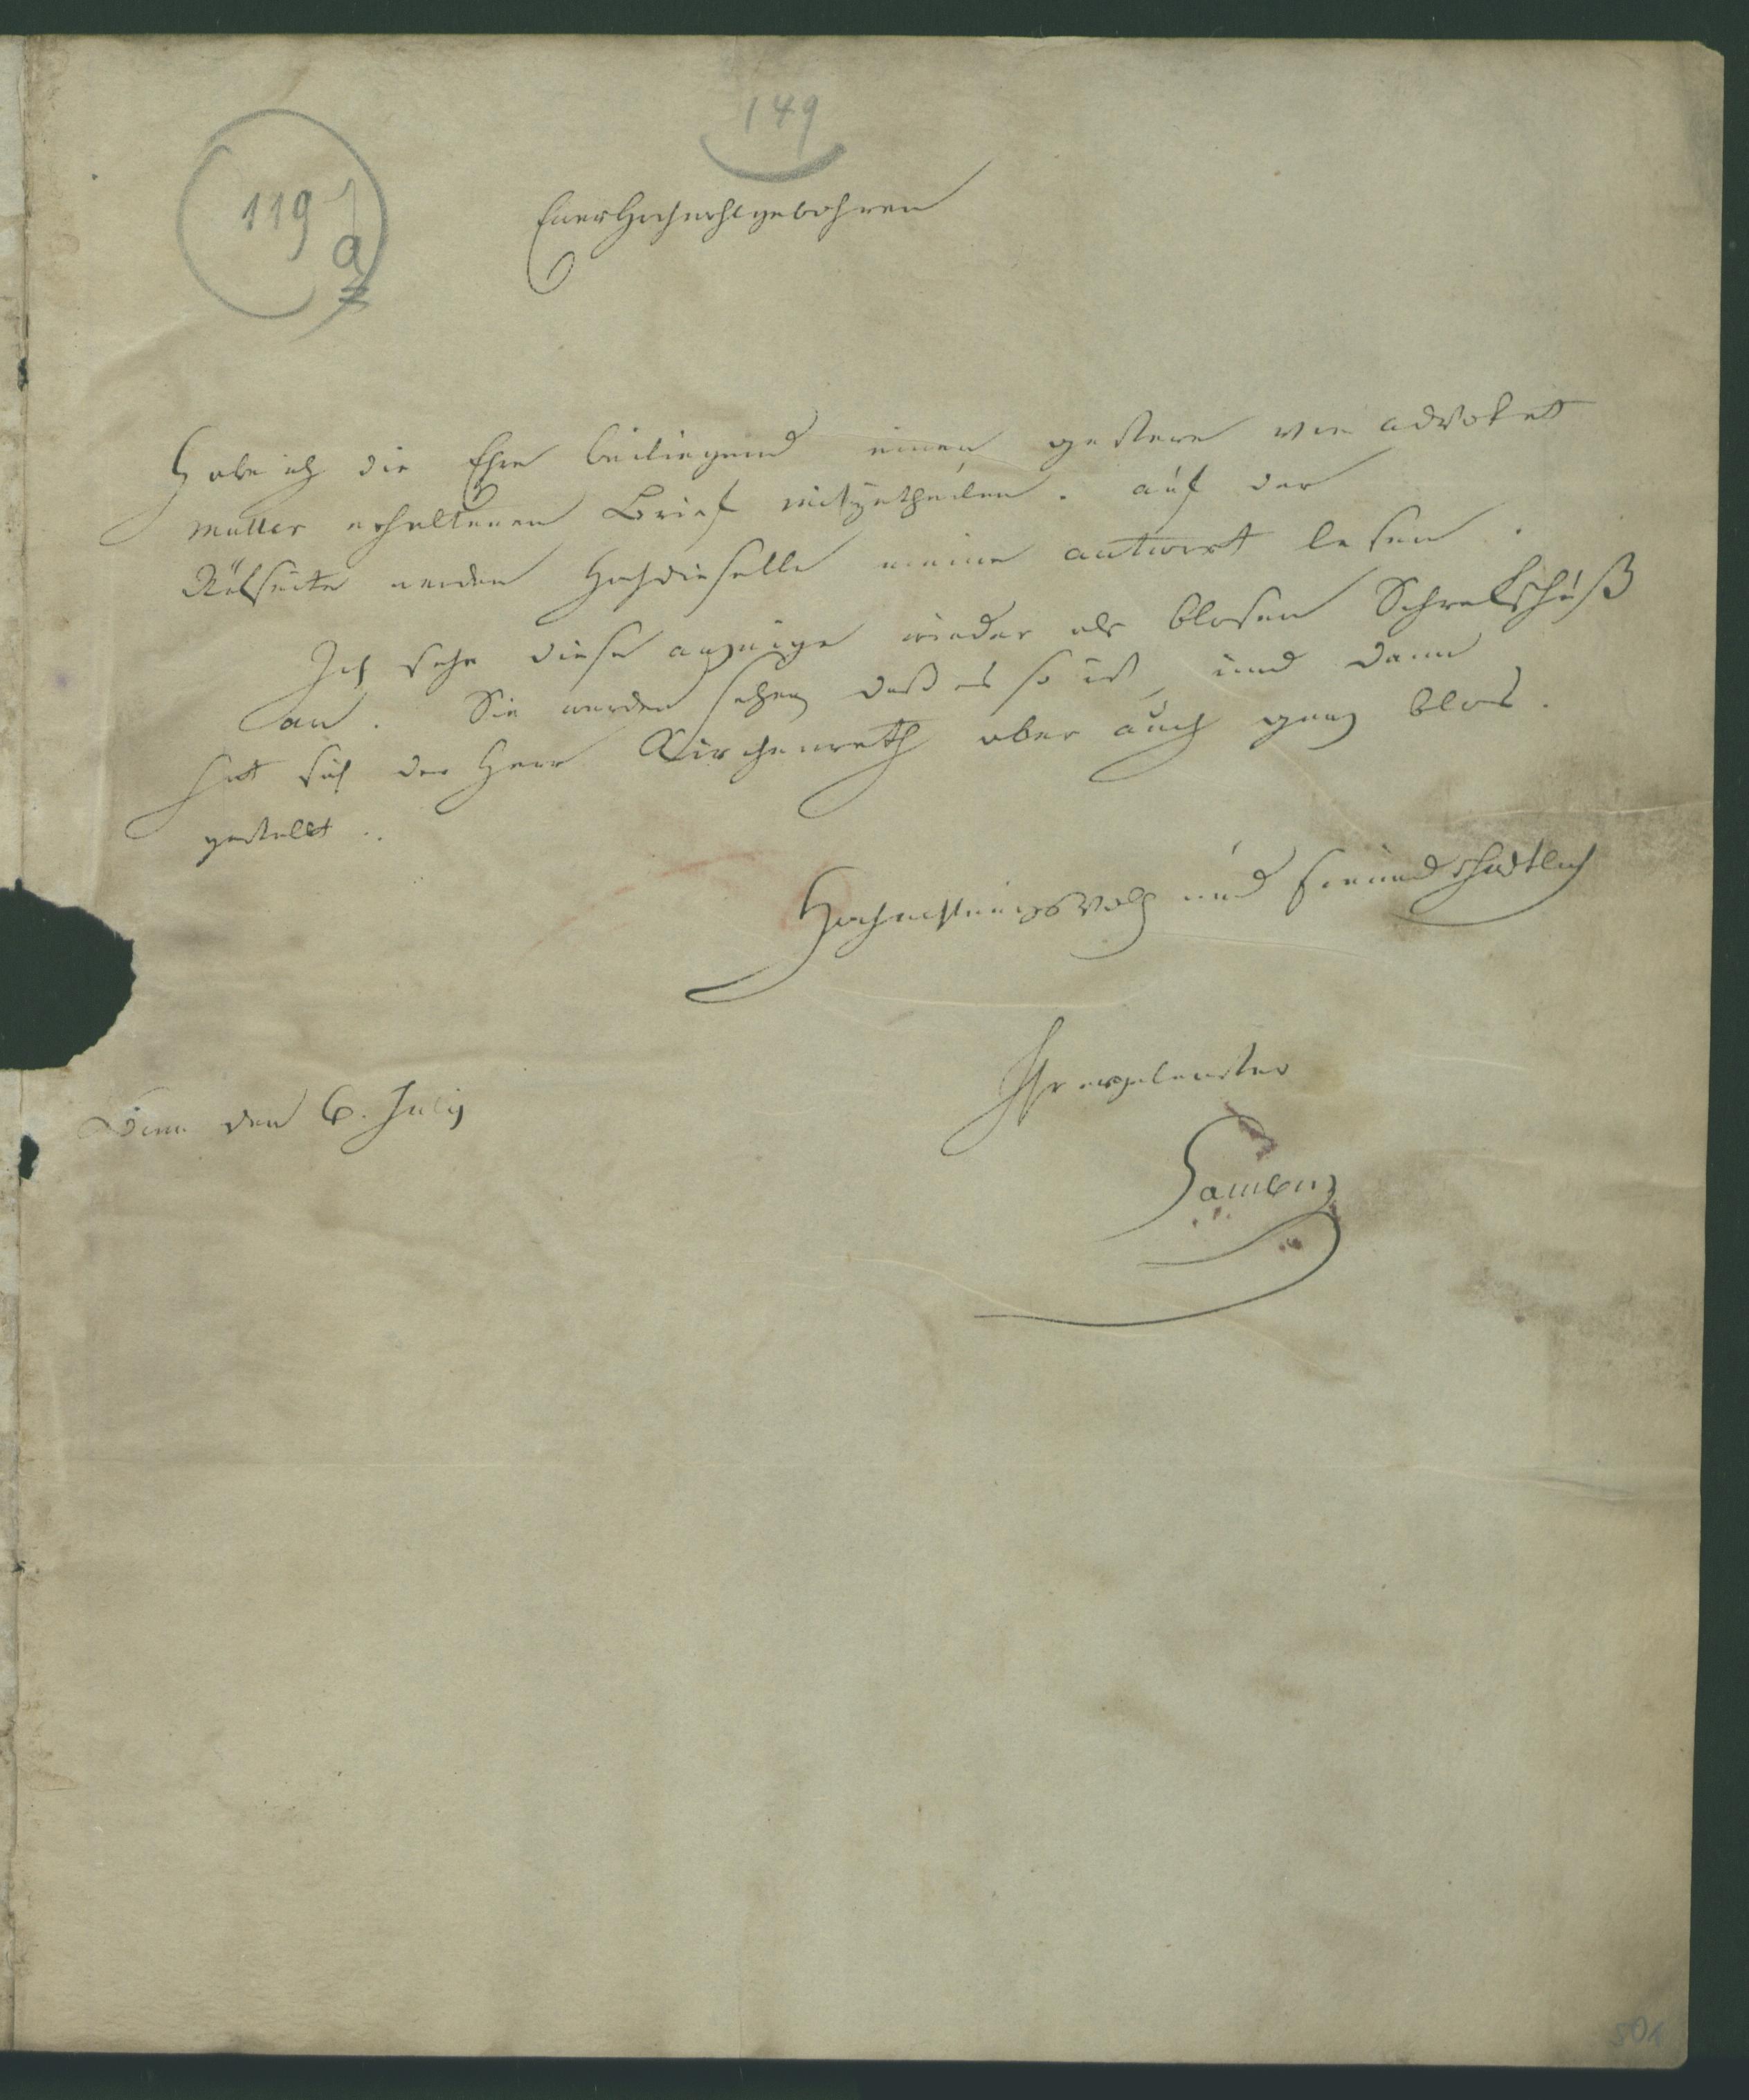 149
119
a
Euer Hochwohlgebohren
Habe ich die Ehre beiliegend einen gestern von advokat
Müller erhaltenen Brief mitzutheilen. auf der
Rükseite werden Hochdieselbe meine antwort lesen.
Ich sehe diese anzeige wieder als blosen Schrekschuß
an. Sie werden sehen daß es so ist, und dann
hat sich der Herr Kirchenrath aber auch ganz blos
gestellt.
Hochachtungsvoll und freundschaftlich
Ihr ergebenster
den 6. July